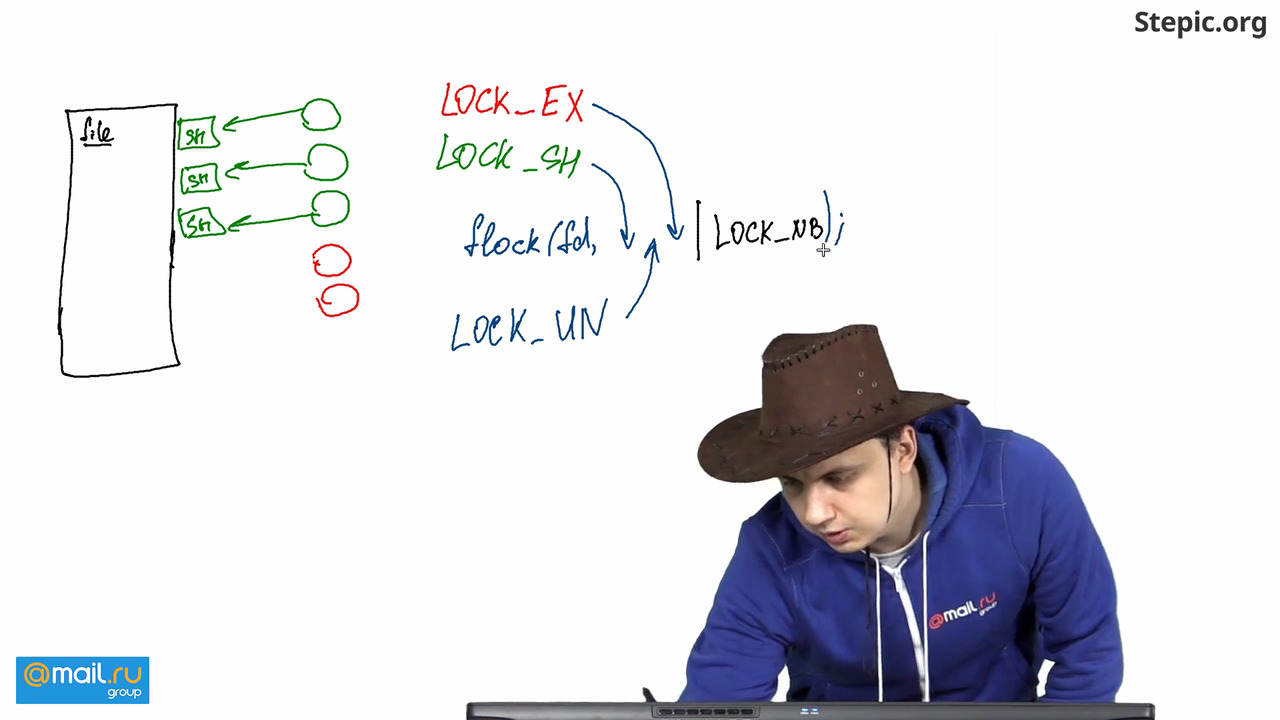 Stepic.org
file
SH
SH
SH
LOCK_EX
LOCK_SH
flock(fd, | LOCK_NB);
LOCK_UN
@mail.ru
group
@mail.ru
group